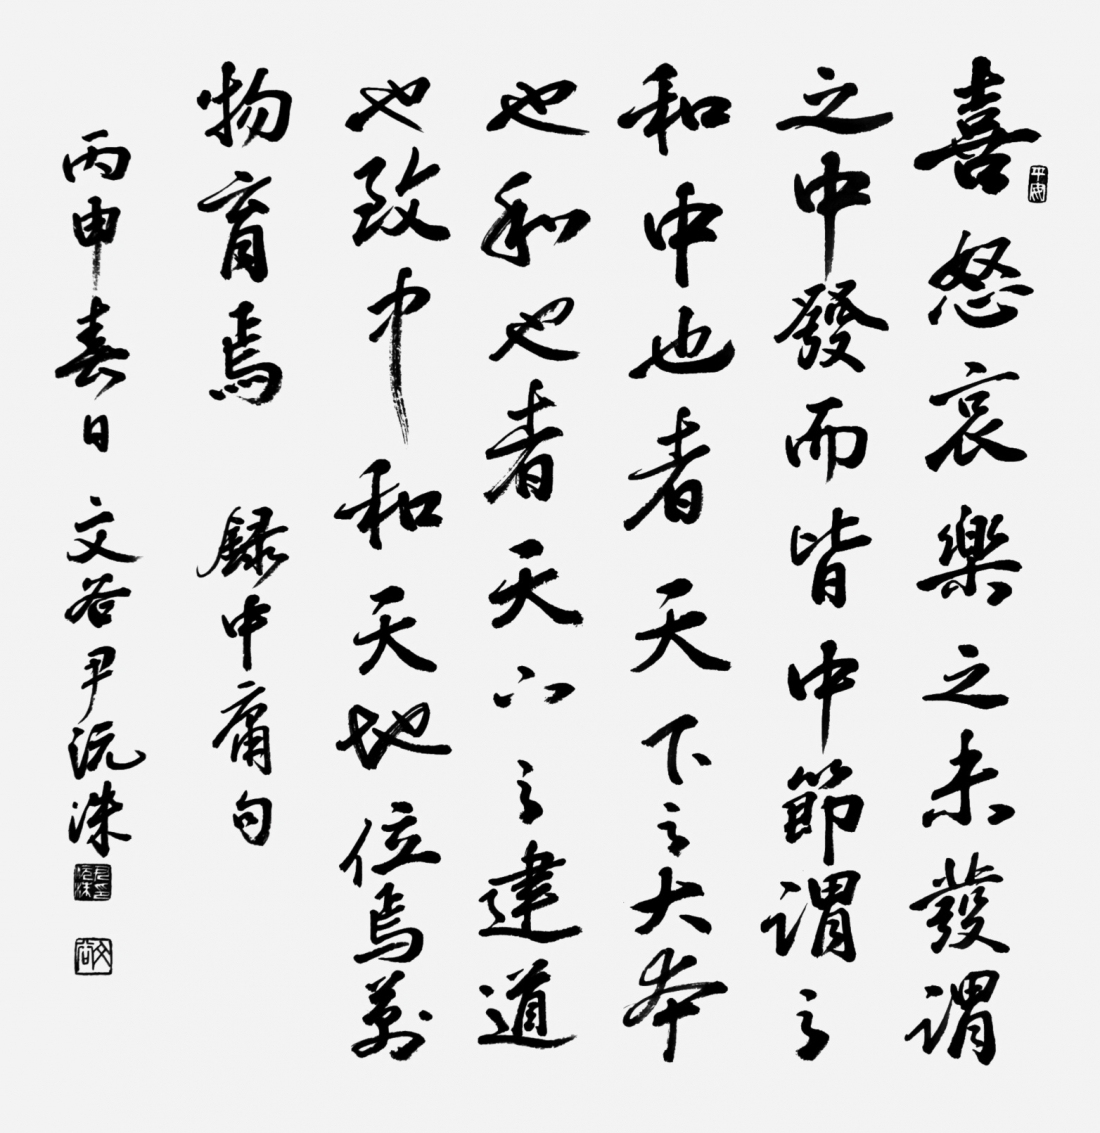 平安
喜怒哀樂之未發謂
之中發而皆中節謂之
和中也者天下之大本
也和也者天下之達道
也致中和天地位焉萬
物育焉 録中庸句
丙申春日 文谷尹沅洙
尹印沅洙
文谷